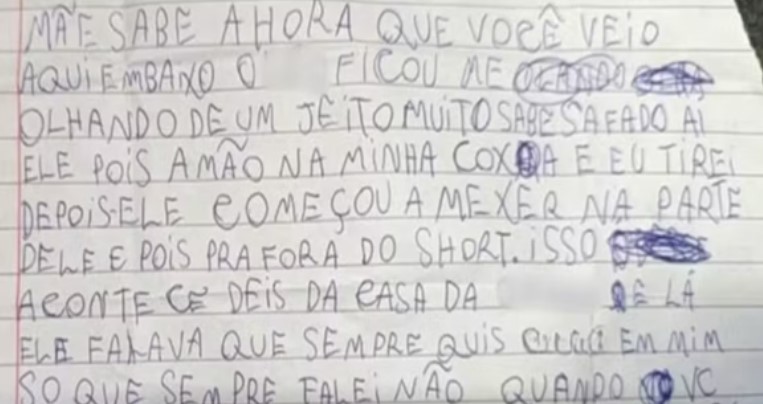 MÃE SABE AHORA QUE VOCÊ VEIO
AQUI EMBAXO O FICOU ME
OLHANDO DE UM JEITO MUITO SABE SAFADO AI
ELE POIS A MÃO NA MINHA COXA E EU TIREI
DEPOIS ELE COMEÇOU A MEXER NA PARTE
DELE E POIS PRA FORA DO SHORT. ISSO
ACONTECE DEIS DA CASA DA DE LÁ
ELE FALAVA QUE SEMPRE QUIS EM MIM
SO QUE SEMPRE FALEI NÃO QUANDO VC